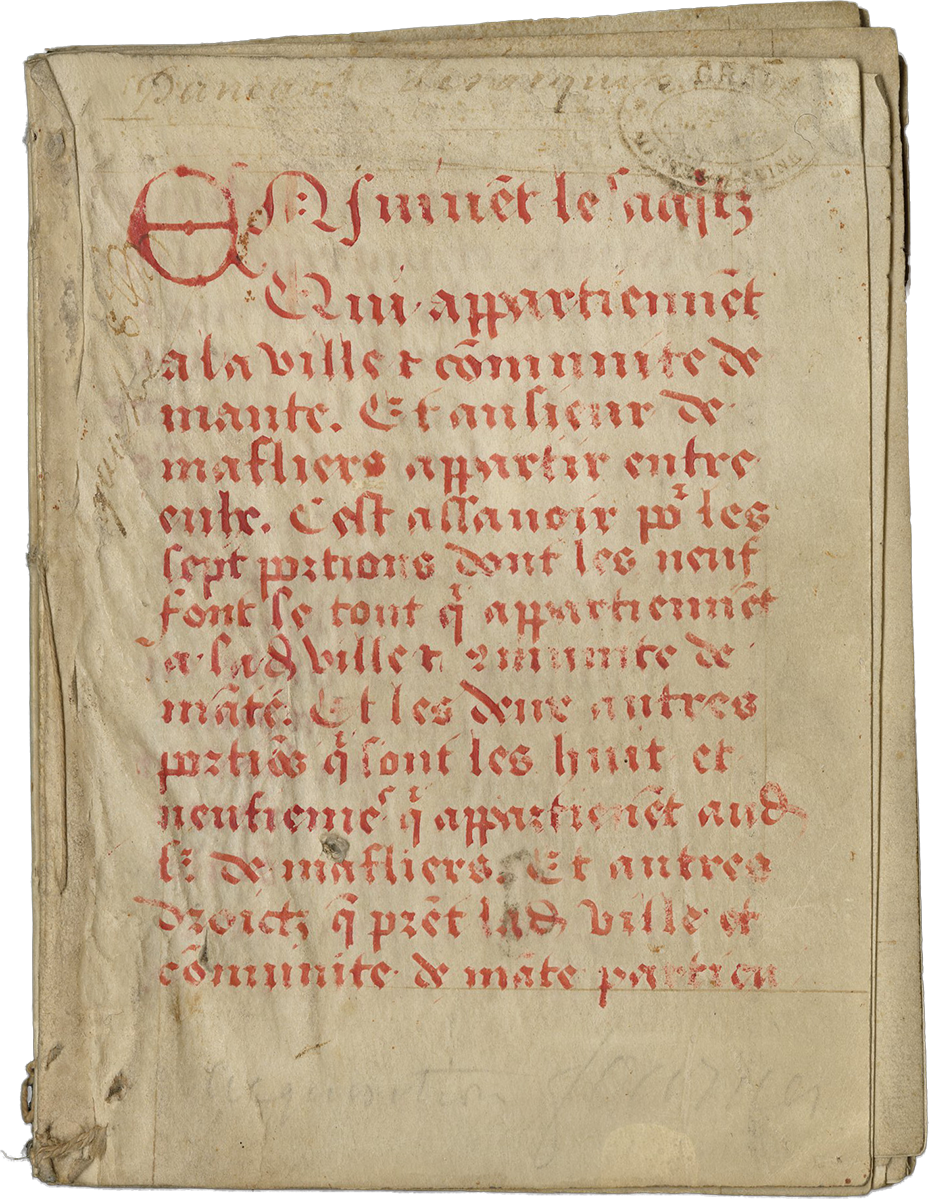 Ensuiuēt les aqstz
Qui appartiennēt
a la ville ⁊ cōmunite de
mante. Et au sieur de
mafliers appartir entre
eulx. Cest assauoir po᷑ les
sept portions dont les neuf
font le tout q̄ appartiennēt
a lad ville ⁊ ꝯmunite de
māte. Et les deux autres
portiōs q̄ sont les huit et
neufieme q̄ appartienēt aud
sr de mafliers. Et autres
droictz q̄ prēt lad ville et
cōmunite de māte particu
Acquisition